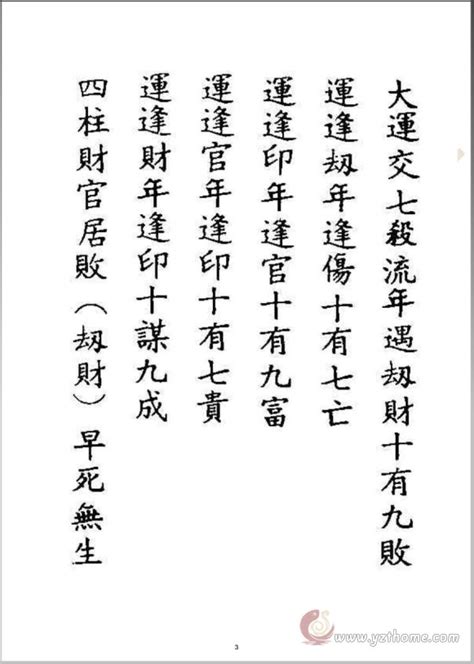 大運交七殺流年遇刼財十有九敗
運逢刼年逢傷十有七亡
運逢印年逢官十有九富
運逢官年逢印十有七貴
運逢財年逢印十謀九成
四柱財官居敗（刼財）早死無生
3
www.yzthome.com